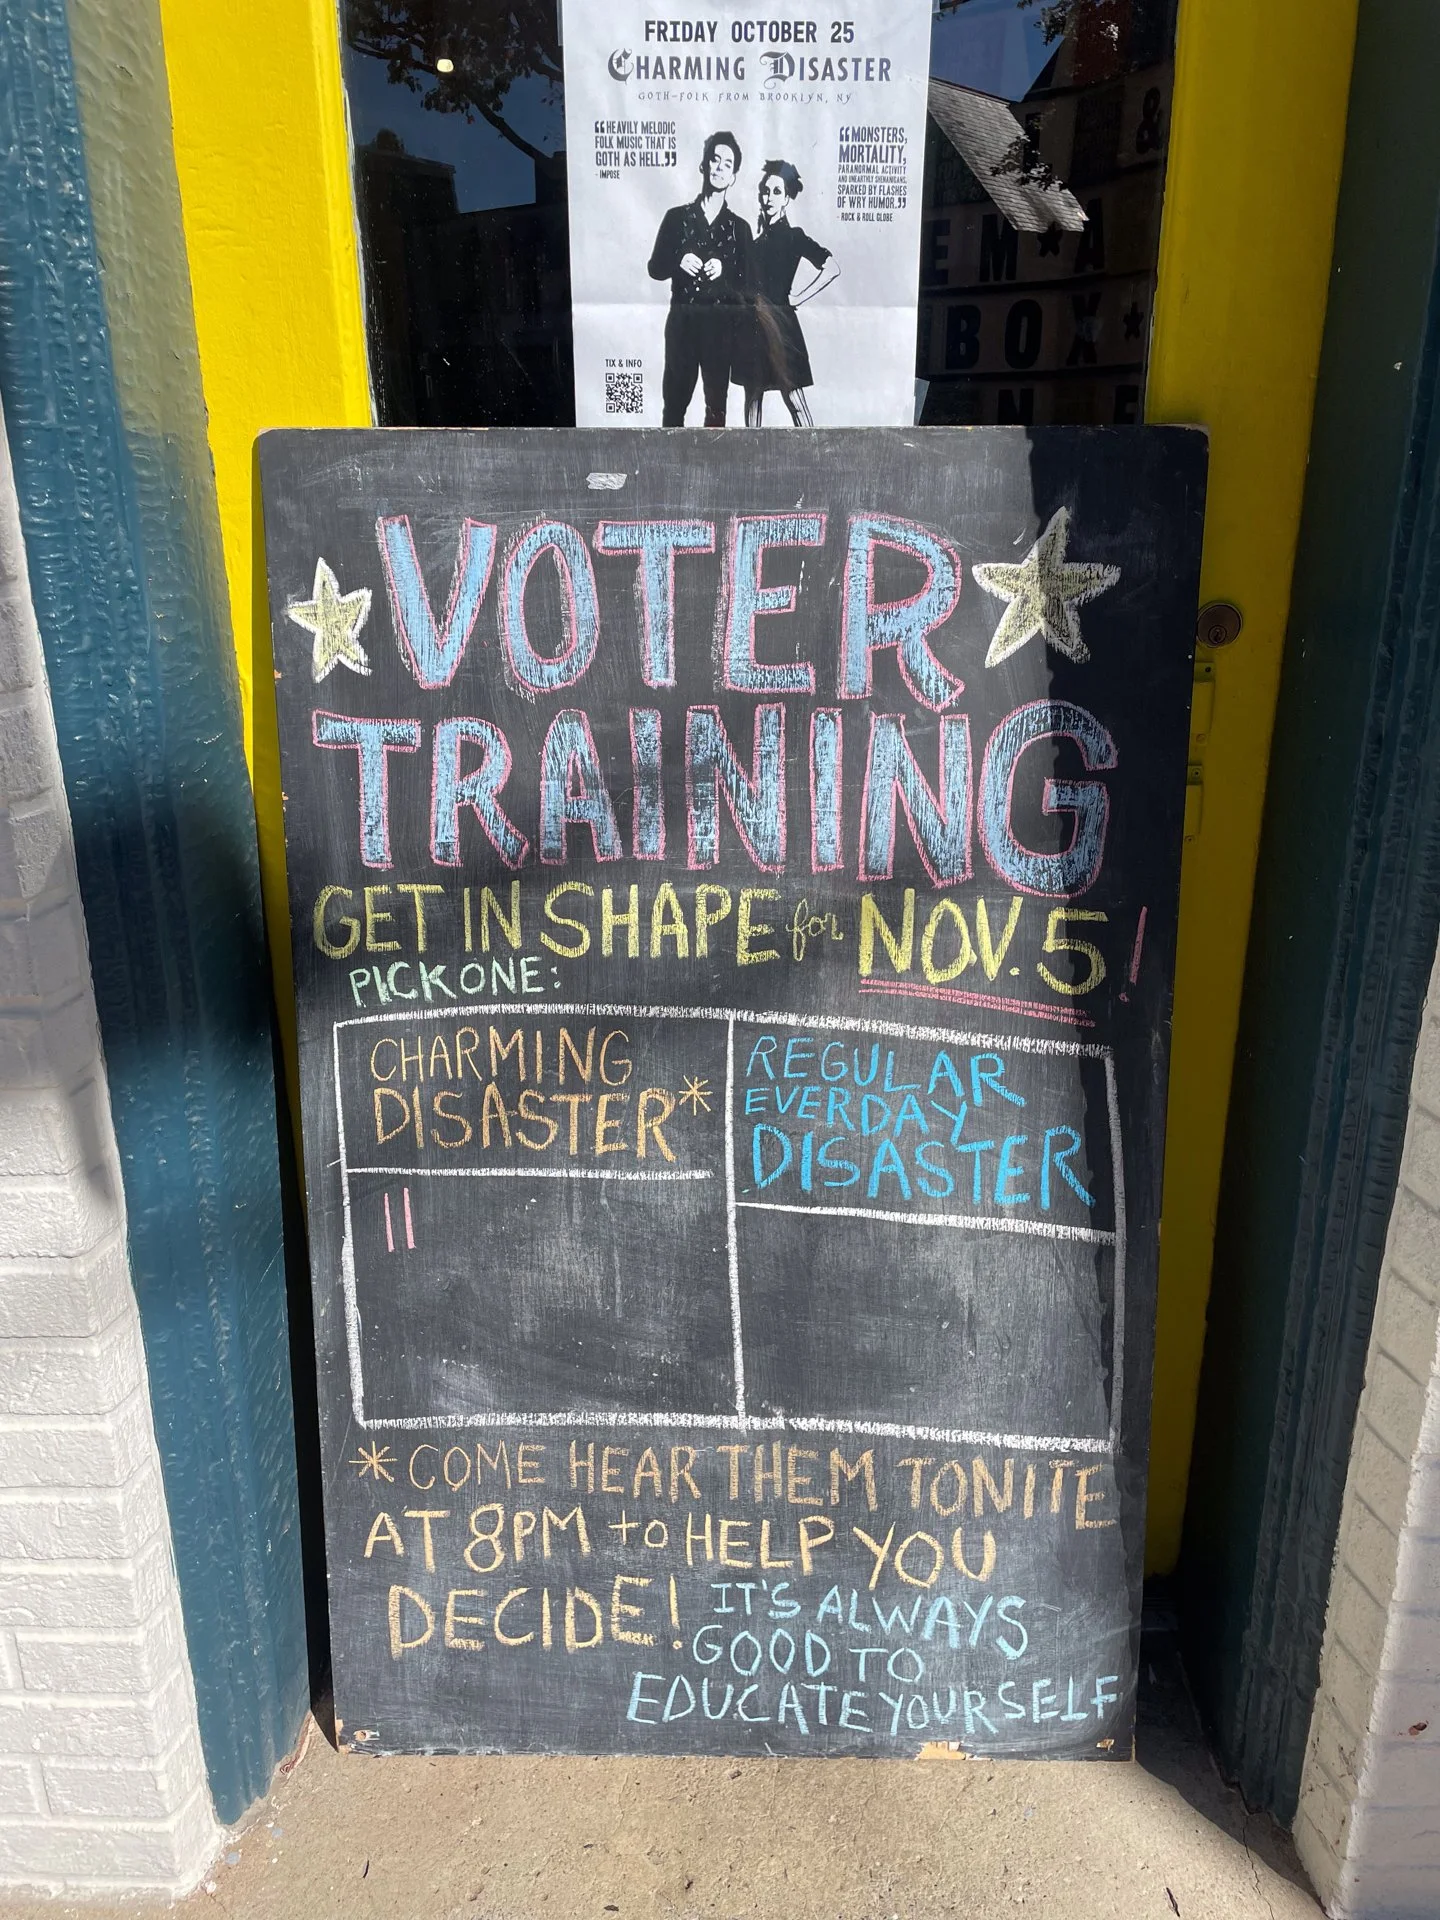 FRIDAY OCTOBER 25
CHARMING DISASTER
GOTH-FOLK FROM BROOKLYN, NY
“HEAVILY MELODIC
FOLK MUSIC THAT IS
GOTH AS HELL.”
- IMPOSE
“MONSTERS,
MORTALITY,
PARANORMAL ACTIVITY
AND UNEARTHLY SHENANIGANS,
SPARKED BY FLASHES
OF WRY HUMOR.”
- ROCK & ROLL GLOBE
TIX & INFO
&
E M ★ A
BOX ★
N E
VOTER
TRAINING
GET IN SHAPE for NOV. 5!
PICK ONE:
CHARMING
DISASTER*
REGULAR
EVERDAY
DISASTER
*COME HEAR THEM TONITE
AT 8PM to HELP YOU
DECIDE!
IT'S ALWAYS
GOOD TO
EDUCATE YOURSELF